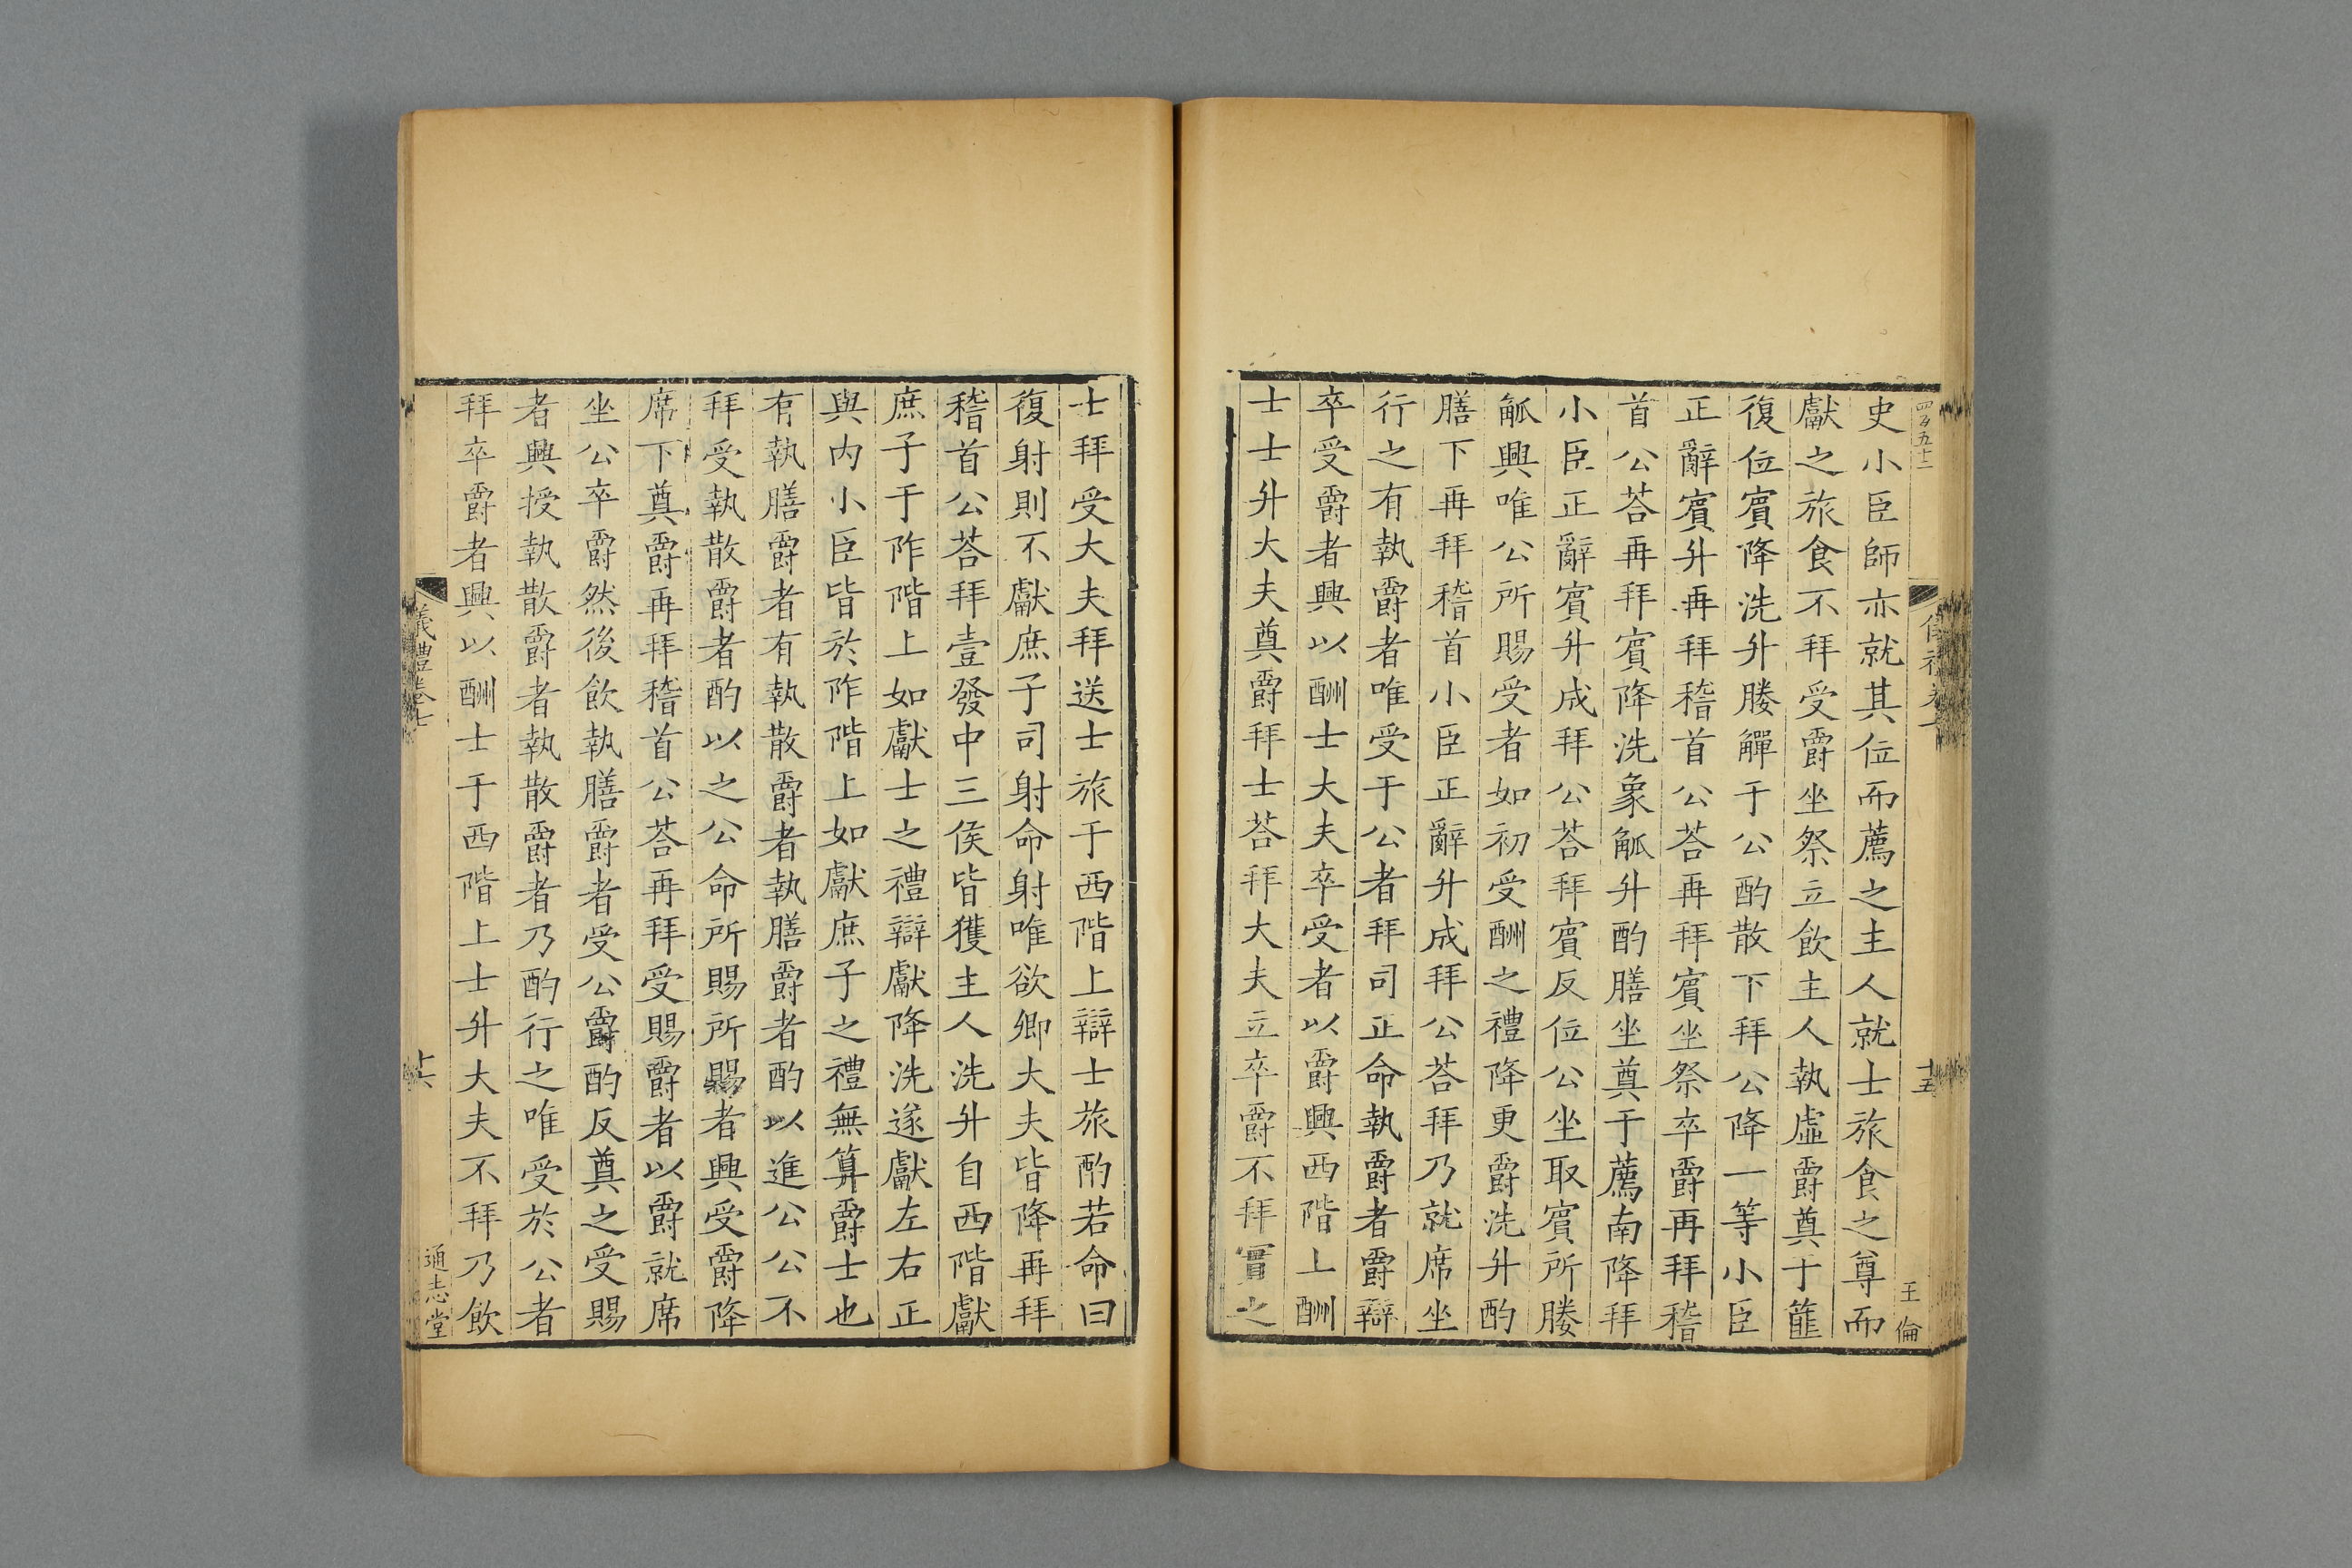 史小臣師亦就其位而薦之主人就士旅食之尊而
獻之旅食不拜受爵坐祭立飲主人執虛爵奠于篚
復位賔降洗升媵觶于公酌散下拜公降一等小臣
正辭賔升再拜稽首公荅再拜賔坐祭卒爵再拜稽
首公荅再拜賔降洗象觚升酌膳坐奠于薦南降拜
小臣正辭賔升成拜公荅拜賔反位公坐取賔所媵
觚興唯公所賜受者如初受酬之禮降更爵洗升酌
膳下再拜稽首小臣正辭升成拜公荅拜乃就席坐
行之有執爵者唯受于公者拜司正命執爵者爵辯
卒受爵者興以酬士大夫卒受者以爵興西階上酬
士士升大夫奠爵拜士荅拜大夫立卒爵不拜實之
十五
王倫
士拜受大夫拜送士旅于西階上辯士旅酌若命曰
復射則不獻庶子司射命射唯欲卿大夫皆降再拜
稽首公荅拜壹發中三侯皆獲主人洗升自西階獻
庶子于阼階上如獻士之禮辯獻降洗遂獻左右正
與内小臣皆於阼階上如獻庶子之禮無算爵士也
有執膳爵者有執散爵者執膳爵者酌以進公公不
拜受執散爵者酌以之公命所賜所賜者興受爵降
席下奠爵再拜稽首公荅再拜受賜爵者以爵就席
坐公卒爵然後飲執膳爵者受公爵酌反奠之受賜
者興授執散爵者執散爵者乃酌行之唯受於公者
拜卒爵者興以酬士于西階上士升大夫不拜乃飲
儀禮卷七
十六
通志堂